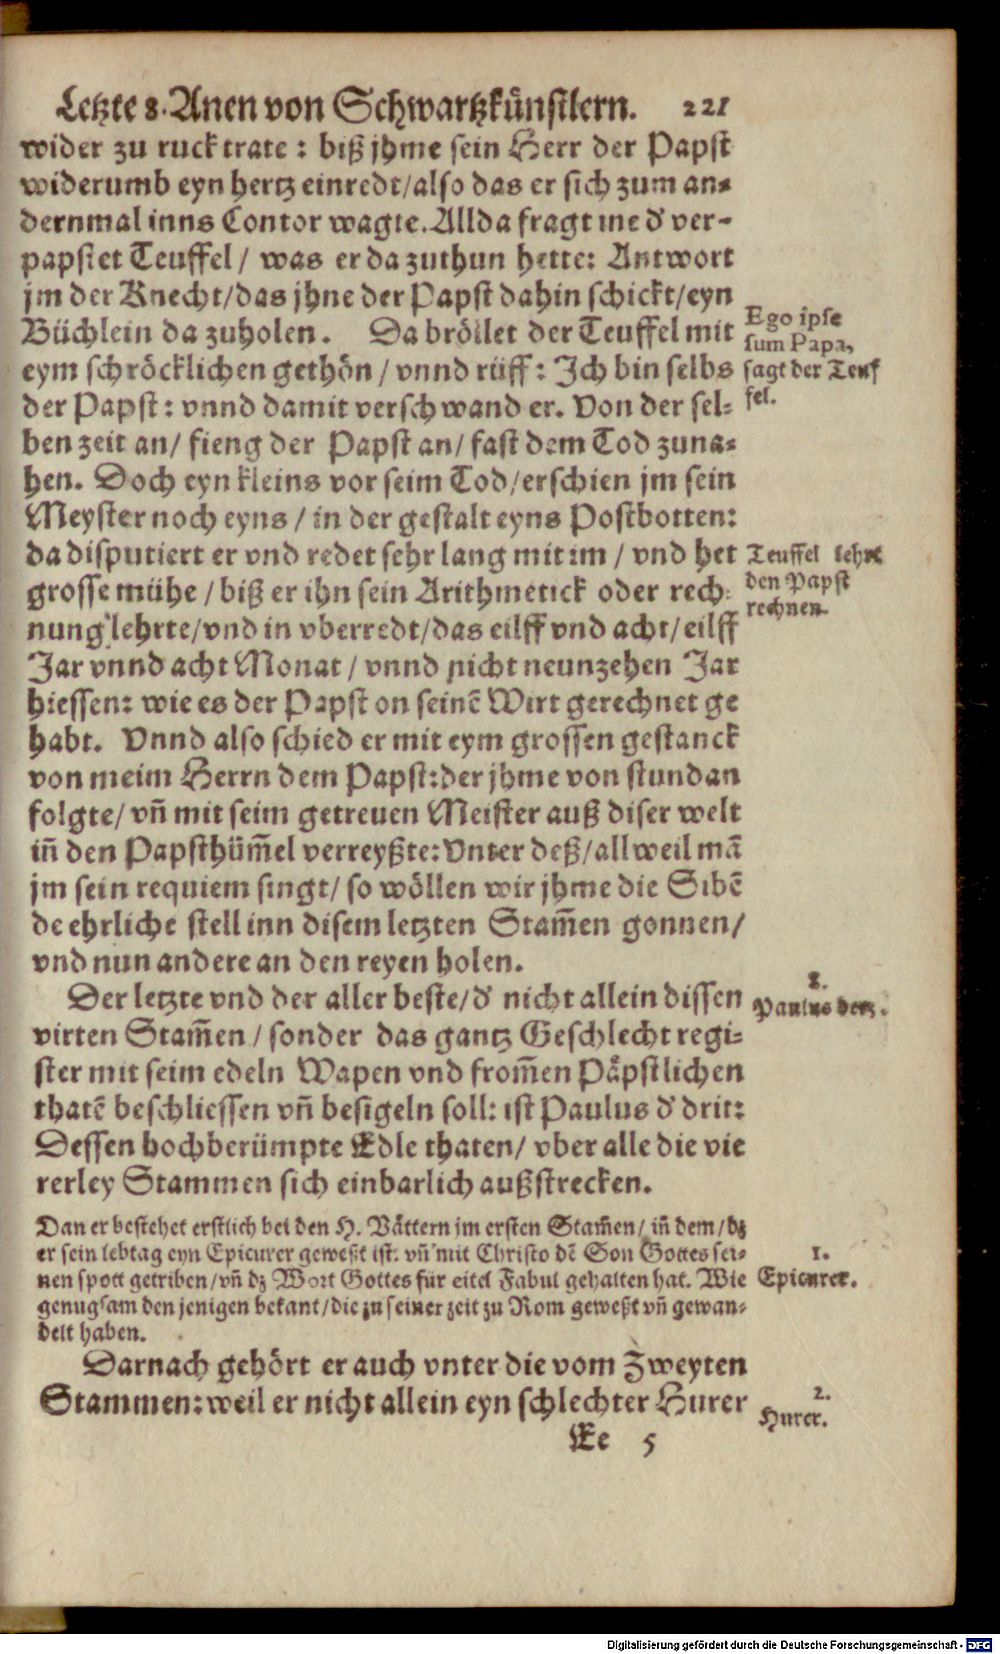 Letzte 8. Anen von Schwartzkünstlern. 221
wider zu ruck trate : biß jhme sein Herr der Papst
widerumb eyn hertz einredt/also das er sich zum an-
dernmal inns Contor wagte. Allda fragt ine d' ver-
papstet Teuffel/ was er da zuthun hette: Antwort
jm der Knecht/das jhne der Papst dahin schickt/eyn
Büchlein da zuholen. Da bröllet der Teuffel mit
eym schröcklichen gethön/ vnnd rüff: Ich bin selbs
der Papst: vnnd damit verschwand er. Von der sel-
ben zeit an/ fieng der Papst an/ fast dem Tod zuna-
hen. Doch eyn kleins vor seim Tod/erschien jm sein
Meyster noch eyns/ in der gestalt eyns Postbotten:
da disputiert er vnd redet sehr lang mit im/ vnd het
grosse mühe/ biß er ihn sein Arithmetick oder rech-
nung lehrte/vnd in vberredt/das eilff vnd acht/eilff
Jar vnnd acht Monat/ vnnd nicht neunzehen Jar
hiessen: wie es der Papst on seinē Wirt gerechnet ge
habt. Vnnd also schied er mit eym grossen gestanck
von meim Herrn dem Papst:der jhme von stund an
folgte/ vñ mit seim getreuen Meister auß diser welt
iñ den Papsthüm̃el verreyßte: Vnter deß/all weil mā
jm sein requiem singt/ so wöllen wir jhme die Sibē
de ehrliche stell inn disem letzten Stam̃en gonnen/
vnd nun andere an den reyen holen.
Ego ipse
sum Papa,
sagt der Teuf
fel.
Teuffel lehrt
den Papst
rechnen.
Der letzte vnd der aller beste/d' nicht allein dissen
virten Stam̃en/ sonder das gantz Geschlecht regi-
ster mit seim edeln Wapen vnd from̃en Päpstlichen
thatē beschliessen vñ besigeln soll: ist Paulus d' drit:
Dessen hochberümpte Edle thaten/ vber alle die vie
rerley Stammen sich einbarlich außstrecken.
8.
Paulus der 3.
Dan er bestehet erstlich bei den H. Vättern jm ersten Stam̃en/ iñ dem/dz
er sein lebtag eyn Epicurer geweßt ist: vñ mit Christo dē Son Gottes sei-
nen spott getriben/vñ dz Wort Gottes für eitel Fabul gehalten hat. Wie
genugsam den jenigen bekant/die zu seiner zeit zu Rom geweßt vñ gewan-
delt haben.
1.
Epicurer.
Darnach gehört er auch vnter die vom Zweyten
Stammen: weil er nicht allein eyn schlechter Hurer
2.
Hurer.
Ee 5
Digitalisierung gefördert durch die Deutsche Forschungsgemeinschaft - DFG